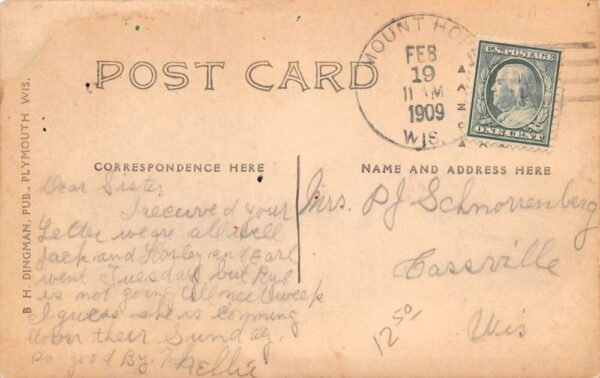 POST CARD
MOUNT HO
FEB
19
11 AM
1909
WIS.
U.S. POSTAGE
ONE CENT
B H DINGMAN, PUB., PLYMOUTH WIS.
CORRESPONDENCE HERE
NAME AND ADDRESS HERE
Dear Sister
I received your
Letter we are all well
Jack and Harley and Earl
went Tuesday but
is not going till next week
I guess she is comming
down their Sunday,
so good By Nellie
Mrs. P J Schnorrenberg
Cassville
Wis
12.50